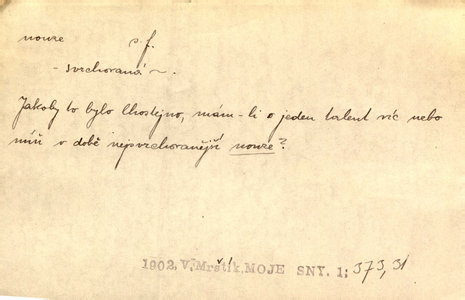 nouze s.f.
- svrchovaná ~.
Jakoby to bylo lhostejno, mám-li o jeden talent víc nebo
míň v době nejsvrchovanější nouze?
1902, V. Mrštík, MOJE SNY. 1; 373, 31